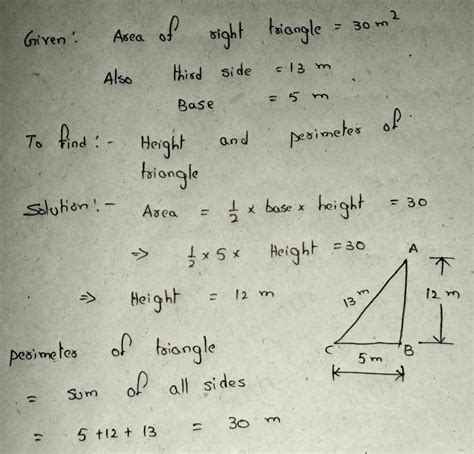 Given: Area of right triangle = 30 m²
Also third side = 13 m
Base = 5 m
To find :- Height and perimeter of
triangle
Solution :- Area = 1/2 × base × height = 30
⇒ 1/2 × 5 × Height = 30
⇒ Height = 12 m
A
13 m
12 m
C
B
5 m
perimeter of triangle
= sum of all sides
= 5 + 12 + 13 = 30 m